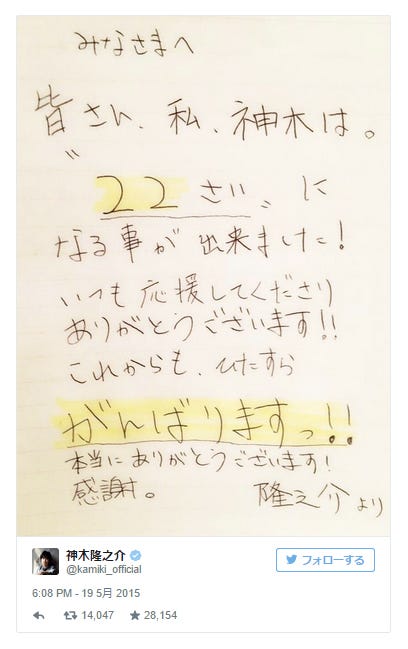 みなさまへ
皆さん、私、神木は。
〝22さい〟に
なる事が出来ました!
いつも応援してくださり
ありがとうございます!!
これからも、ひたすら
がんばりますっ!!
本当にありがとうございます!
感謝。 隆之介より
神木隆之介
@kamiki_official
フォローする
6:08 PM - 19 5月 2015
14,047 28,154